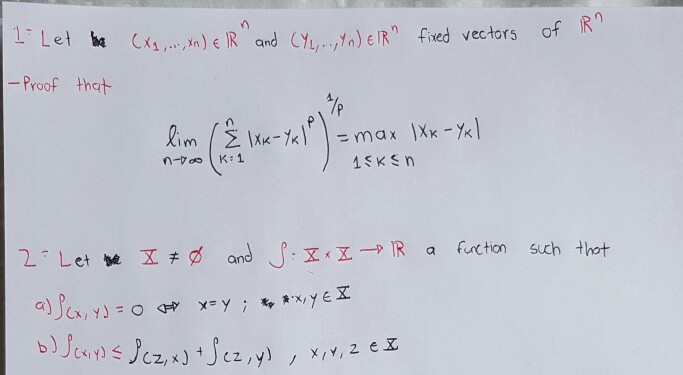 1= Let (x₁,...,xn) ∈ ℝⁿ and (y₁,..,yn) ∈ ℝⁿ fixed vectors of ℝⁿ
-Proof that
lim n→∞ (∑ k=1 n |xk-yk|^p)^1/p = max 1≤k≤n |xk-yk|
2= Let X ≠ ∅ and ρ: X × X → ℝ a function such that
a) ρ(x,y) = 0 ⇔ x=y ; x,y ∈ X
b) ρ(x,y) ≤ ρ(z,x) + ρ(z,y) , x,y,z ∈ X